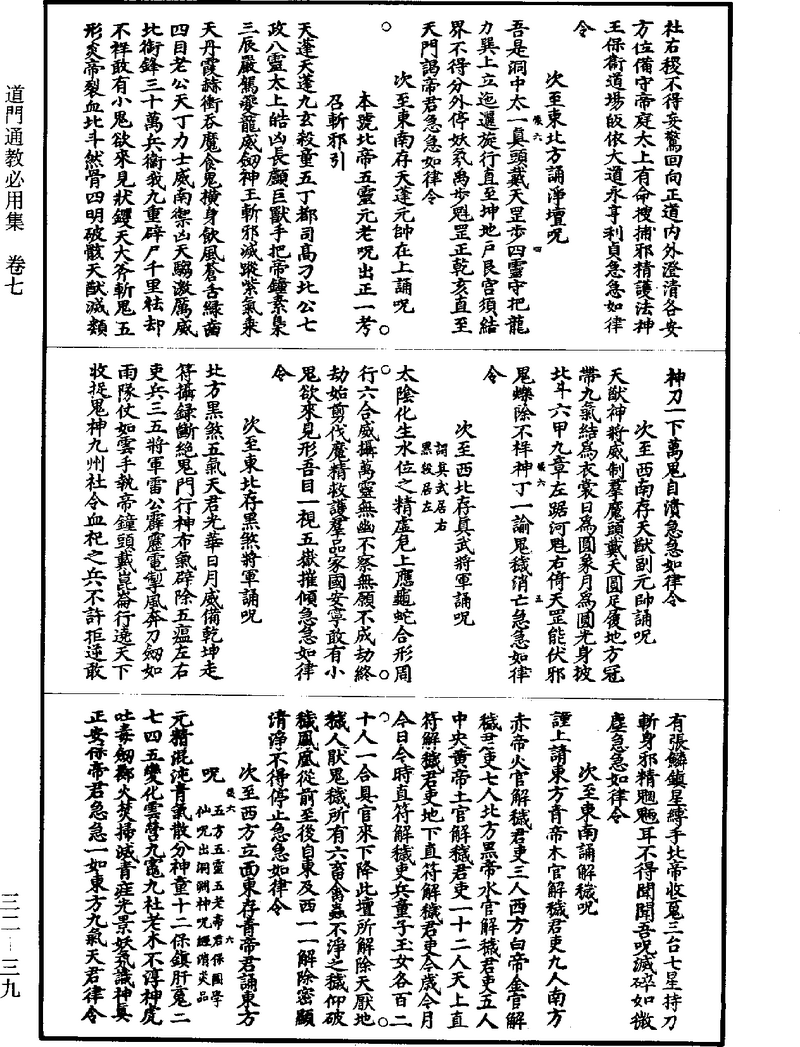 道門通教必用集　卷七
社右稷不得妄驚回向正道內外澄清各安
方位備守帝庭太上有命搜捕邪精護法神
王保衛道場皈依大道永亨利貞急急如律
令
次至東北方誦淨壇呪
吾是洞中太一眞頭戴天罡步四靈守把龍
力巽上立迤邐旋行直至坤地戶艮宮須結
界不得分外停妖炁禹步魁罡正乾亥直至
天門謁帝君急急如律令
次至東南存天蓬元帥在上誦呪
本號北帝五靈元老呪出正一考
召斬邪引
天蓬天蓬九玄殺童五丁都司高刁北公七
政八靈太上皓凶長顱巨獸手把帝鐘素梟
三辰嚴駕夔龍威劒神王斬邪滅蹤紫氣乘
天丹霞赫衝吞魔食鬼橫身飲風蒼舌綠齒
四目老公天丁力士威南禦凶天騶激厲威
北銜鋒三十萬兵衛我九重辟尸千里祛却
不祥敢有小鬼欲來見狀钁天大斧斬鬼五
形炎帝裂血北斗然骨四明破骸天猷滅類
神刀一下萬鬼自潰急急如律令
次至西南存天猷副元帥誦呪
天猷神將威制羣魔頭戴天圓足履地方冠
帶九氣結爲衣裳日爲圓象月爲圓光身披
北斗六甲九章左踞河魁右倚天罡能伏邪
鬼蠑除不祥神丁一諭鬼穢消亡急急如律
令
次至西北存眞武將軍誦呪
詞眞武居右
黑殺居左
太陰化生水位之精虛危上應龜蛇合形周
行六合威攝萬靈無幽不察無願不成劫終
劫始剪伐魔精救護羣品家國安寧敢有小
鬼欲來見形吾目一視五嶽摧傾急急如律
令
次至東北存黑煞將軍誦呪
北方黑煞五氣天君光華日月威備乾坤走
符攝録斷絕鬼門行神布氣辟除五瘟左右
吏兵三五將軍雷公霹靂電掣風奔刀劒如
雨隊仗如雲手執帝鐘頭戴崑崙行遶天下
收捉鬼神九州社令血祀之兵不許拒逆敢
有張鱗鎮星縛手北帝收䰟三台七星持刀
斬身邪精魍魎耳不得聞聞吾呪滅碎如微
塵急急如律令
次至東南誦解穢呪
謹上請東方青帝木官解穢君吏九人南方
赤帝火官解穢君吏三人西方白帝金官解
穢君吏七人北方黑帝水官解穢君吏五人
中央黃帝土官解穢君吏一十二人天上直
符解穢君吏地下直符解穢君吏今歲今月
今日今時直符解穢吏兵童子玉女各百二
十人一合具官來下降此壇所解除天厭地
穢人厭鬼穢所有六畜禽蟲不淨之穢仰破
穢鳳凰從前至後自東及西一一解除密願
清淨不得停止急急如律令
次至西方立面東存青帝君誦東方
呪
五方五靈五老帝君保國學
仙呪出洞淵神呪經消災品
元精混沌青氣散分神童十二保鎮肝䰟二
七四五變化雲營九竈九社老木不淳神虎
吐毒劒鄴火焚掃滅青疰光景妖炁識神眞
正安保帝君急急一如東方九氣天君律令
三二—三九